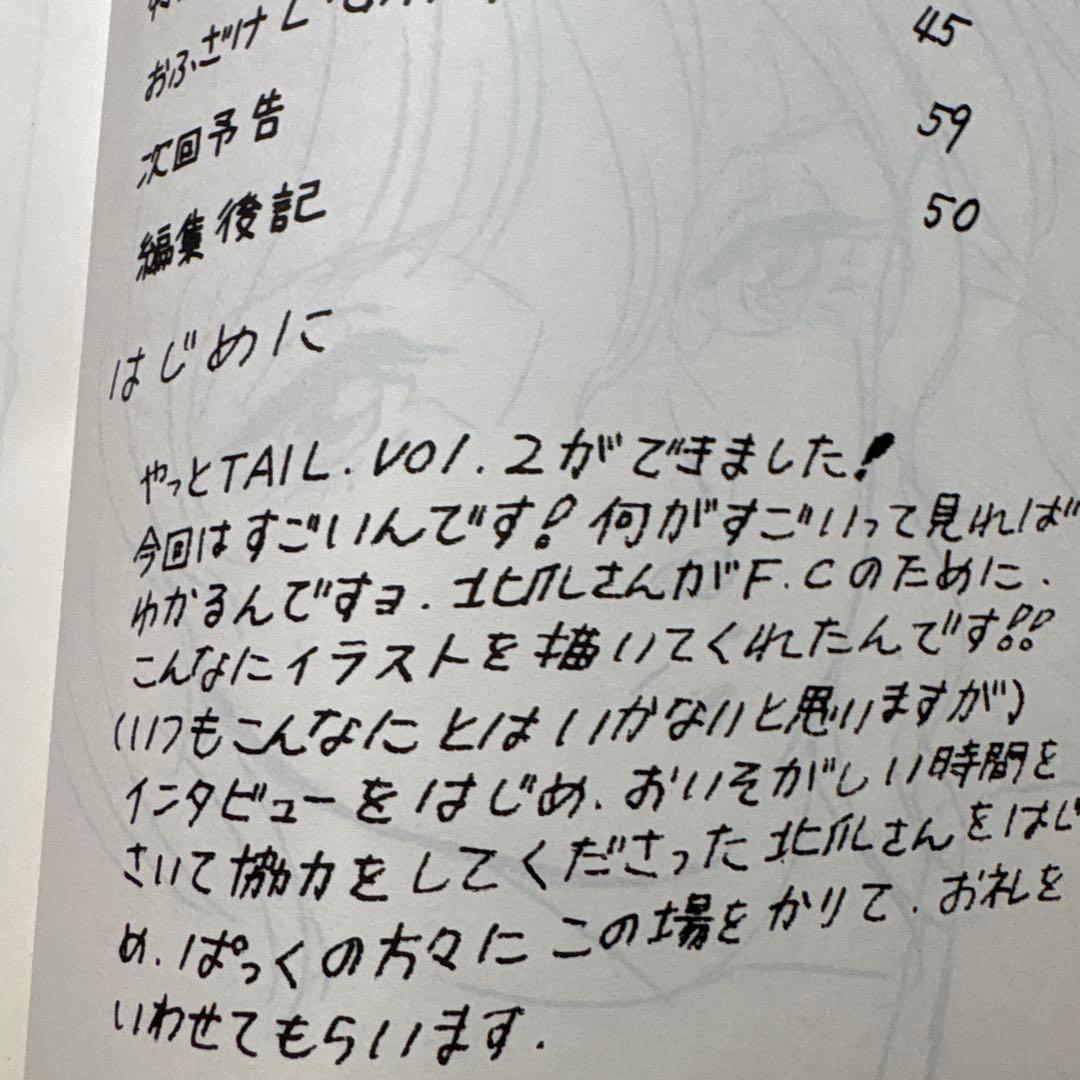 おふざけ 45
次回予告 59
編集後記 50
はじめに
やっとTAIL.VOl.2ができました!
今回はすごいんです!何がすごいって見れば
わかるんですョ.北爪さんがF.Cのために.
こんなにイラストを描いてくれたんです!!
(いつもこんなにとはいかないと思いますが)
インタビューをはじめ、おいそがしい時間を
さいて協力をしてくださった北爪さんをはじ
め、ぱっくの方々にこの場をかりて、お礼を
いわせてもらいます.